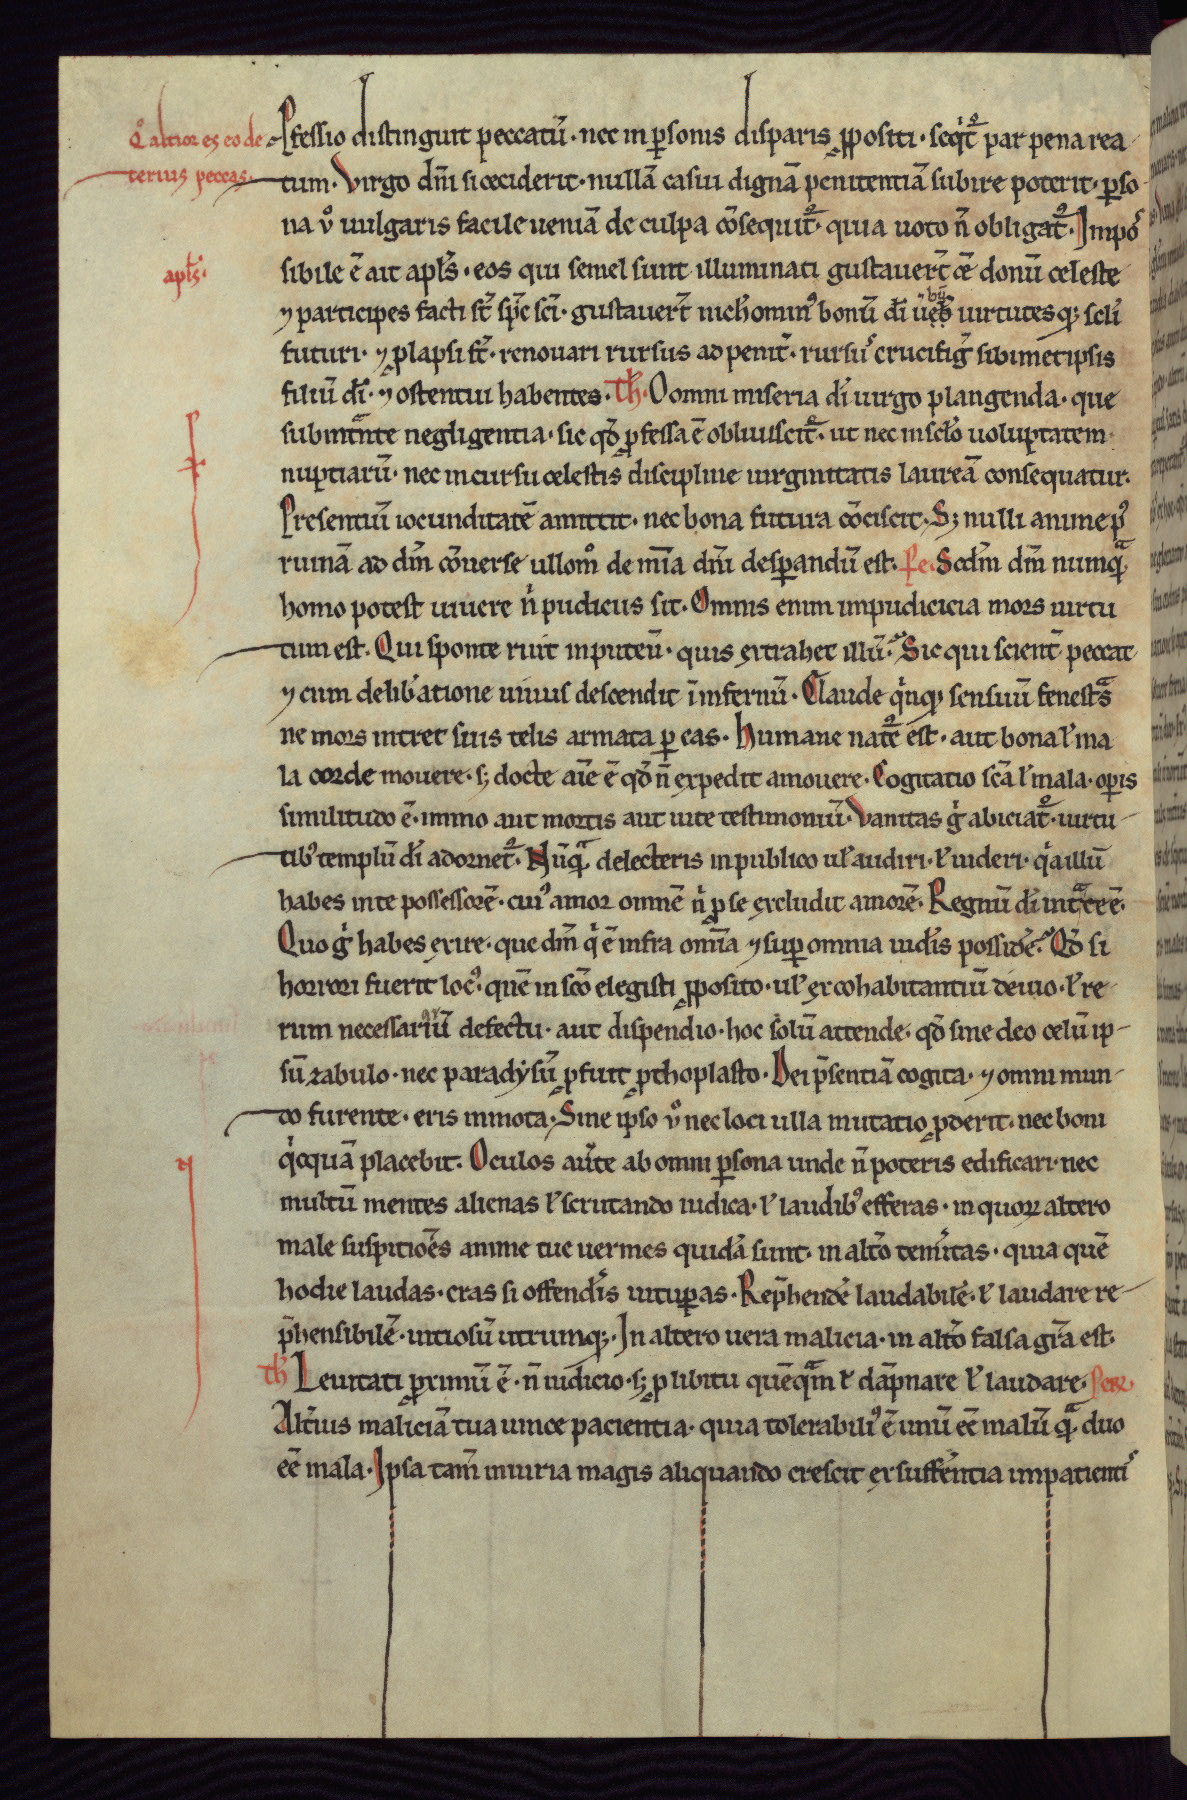 Qͦ altior es eo de
terius peccas.
Pfessio distinguit peccatū. nec in p̱sonis disparis p̱positi. seq̇t᷒ par pena rea
tum. Virgo dn̄i si ceciderit. nullā casui dignā penitentiā subire poterit. p̱so
na ṽ uulgaris facile ueniā de culpa c̄sequit᷒. quia uoto n̄ obligat᷒. Impo
apłs.
sibile ē ait apłs. eos qui semel sunt illuminati gustauert̄ donū celeste
⁊ participes facti st̄ sp̄c sc̄i. gustauert̄ nichomin᷒ bonū dī uirtutesq; scłi
futuri. ⁊ p̱lapsi st̄. renouari rursus ad penit̄. rursū crucifig̃ sibimetipsis
filiū dī. ⁊ ostentui habentes. Th. O omni miseria dī uirgo plangenda. que
subintrante negligentia. sic qd̄ p̱fessa ē obliuiscit᷒. ut nec in scło uoluptatem
nuptiarū. nec in cursu celestis discipline uirginitatis laureā consequatur.
Presentiū iocunditatē amittit. nec bona futura c̄ciscit. S; nulli anime p᷒
ruinā ad dm̄ c̄uerse ullom̊ de mīa dn̄i desp̱andū est. Pe. Scd̄m dm̄ numq̄
homo potest uiuere n̍ pudicus sit. Omnis enim impudicicia mors uirtu
tum est. Qui sponte ruit in puteū. quis extrahet illū. Sic qui scient̄ peccat
⁊ cum delib̄atione uiuus descendit ī infernū. Claude q̍nq; sensuū fenestᵃs
ne mors intret suis telis armata p̱ eas. Humane nat̄e est. aut bona ł ma
la corde mouere. s; docte aīe ē qd̄ n̄ expedit amouere. Cogitatio sc̄a ł mala. op̱is
similitudo ē. immo aut mortis aut uite testimoniū. Vanitas g̍ abiciat᷒. uirtu
tib᷒ templū dī adornet᷒. Nūq̄ delecteris in publico uł audiri. ł uideri. q̍a illū
habes in te possessorē. cui᷒ amor omnē n̍ p̱ se excludit amorē. Regnū dī intᵃ te ē.
Quo g̍ habes exire. que dm̄ q̍ ē infra om̄ia ⁊ sup̱ omnia uidēs possidē. Qd̄ si
horrori fuerit loc᷒. quē in sc̄o elegisti p̱posito. uł ex cohabitantiū deuio. ł re
rum necessariarū defectu. aut dispendio. hoc solū attende. qd̄ sine deo celū ip
sū zabulo. nec paradysū p̱fuit p̱thoplasto. Dei p̄sentiā cogita. ⁊ omni mun
do furente. eris inmota. Sine ip̄so ṽ nec loci ulla mutatio p̱derit. nec boni
q̍cquā placebit. Oculos aūte ab omni p̱sona unde n̄ poteris edificari. nec
multū mentes alienas ł scrutando iudica. ł laudib᷒ efferas. in quoꝝ altero
male suspitiōes anime tue uermes quidā sunt. in alt̄o tem̄itas. quia quē
hodie laudas. cras si offendīs uitup̱as. Rep̄hendē laudabilē. ł laudare re
p̄hensibilē. uitiosū utrumq;. In altero uera malicia. in alt̄o falsa gr̄a est.
Th Leuitati p̱ximū ē. n̄ iudicio. s; p̱ libitu quēq̄m ł dāpnare ł laudare.
Alt̄ius maliciā tua uince pacientia. quia tolerabili᷒ ē unū eē malū q̄ duo
eē mala. Ipsa tam̄ iniuria magis aliquando crescit ex sufferentia impatienti᷒